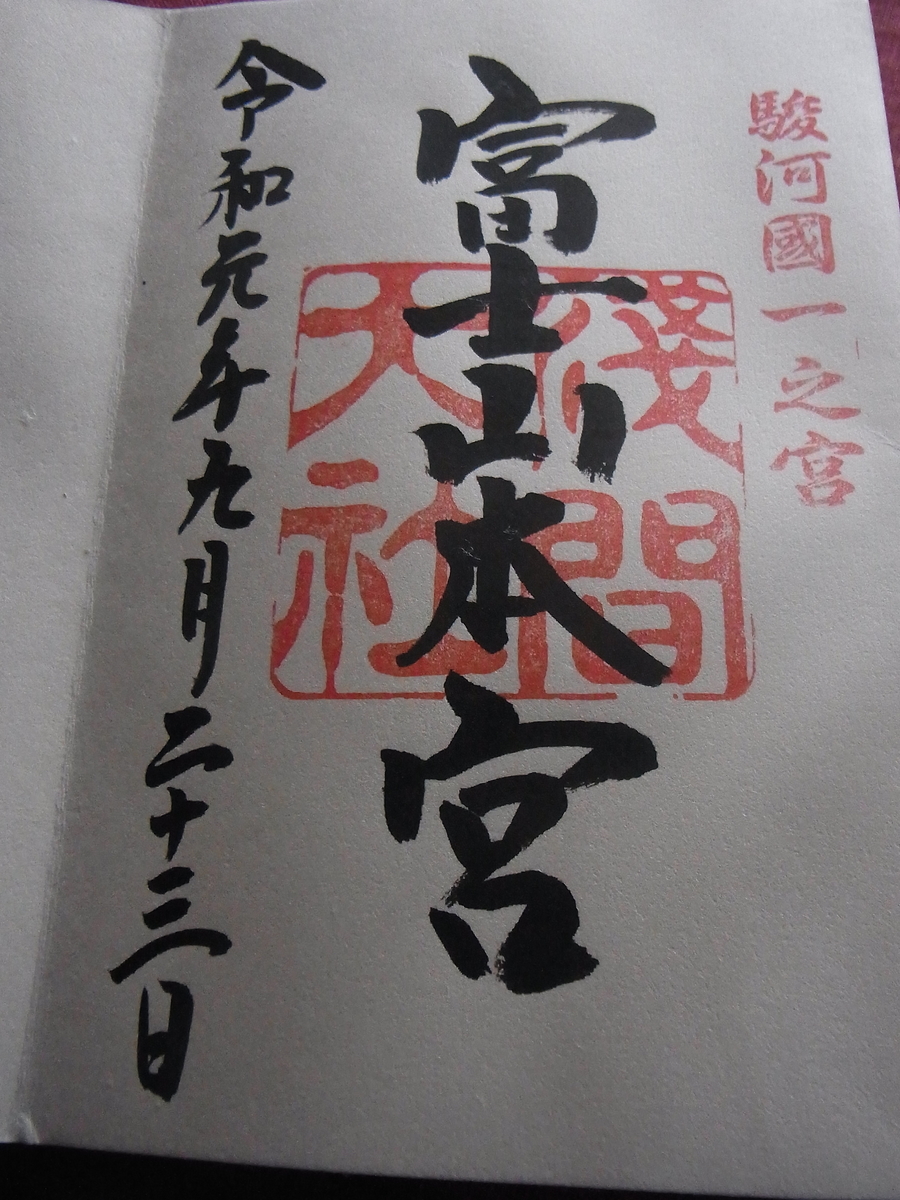 駿河國一之宮
富士山本宮
淺間
大社
令和元年九月二十三日